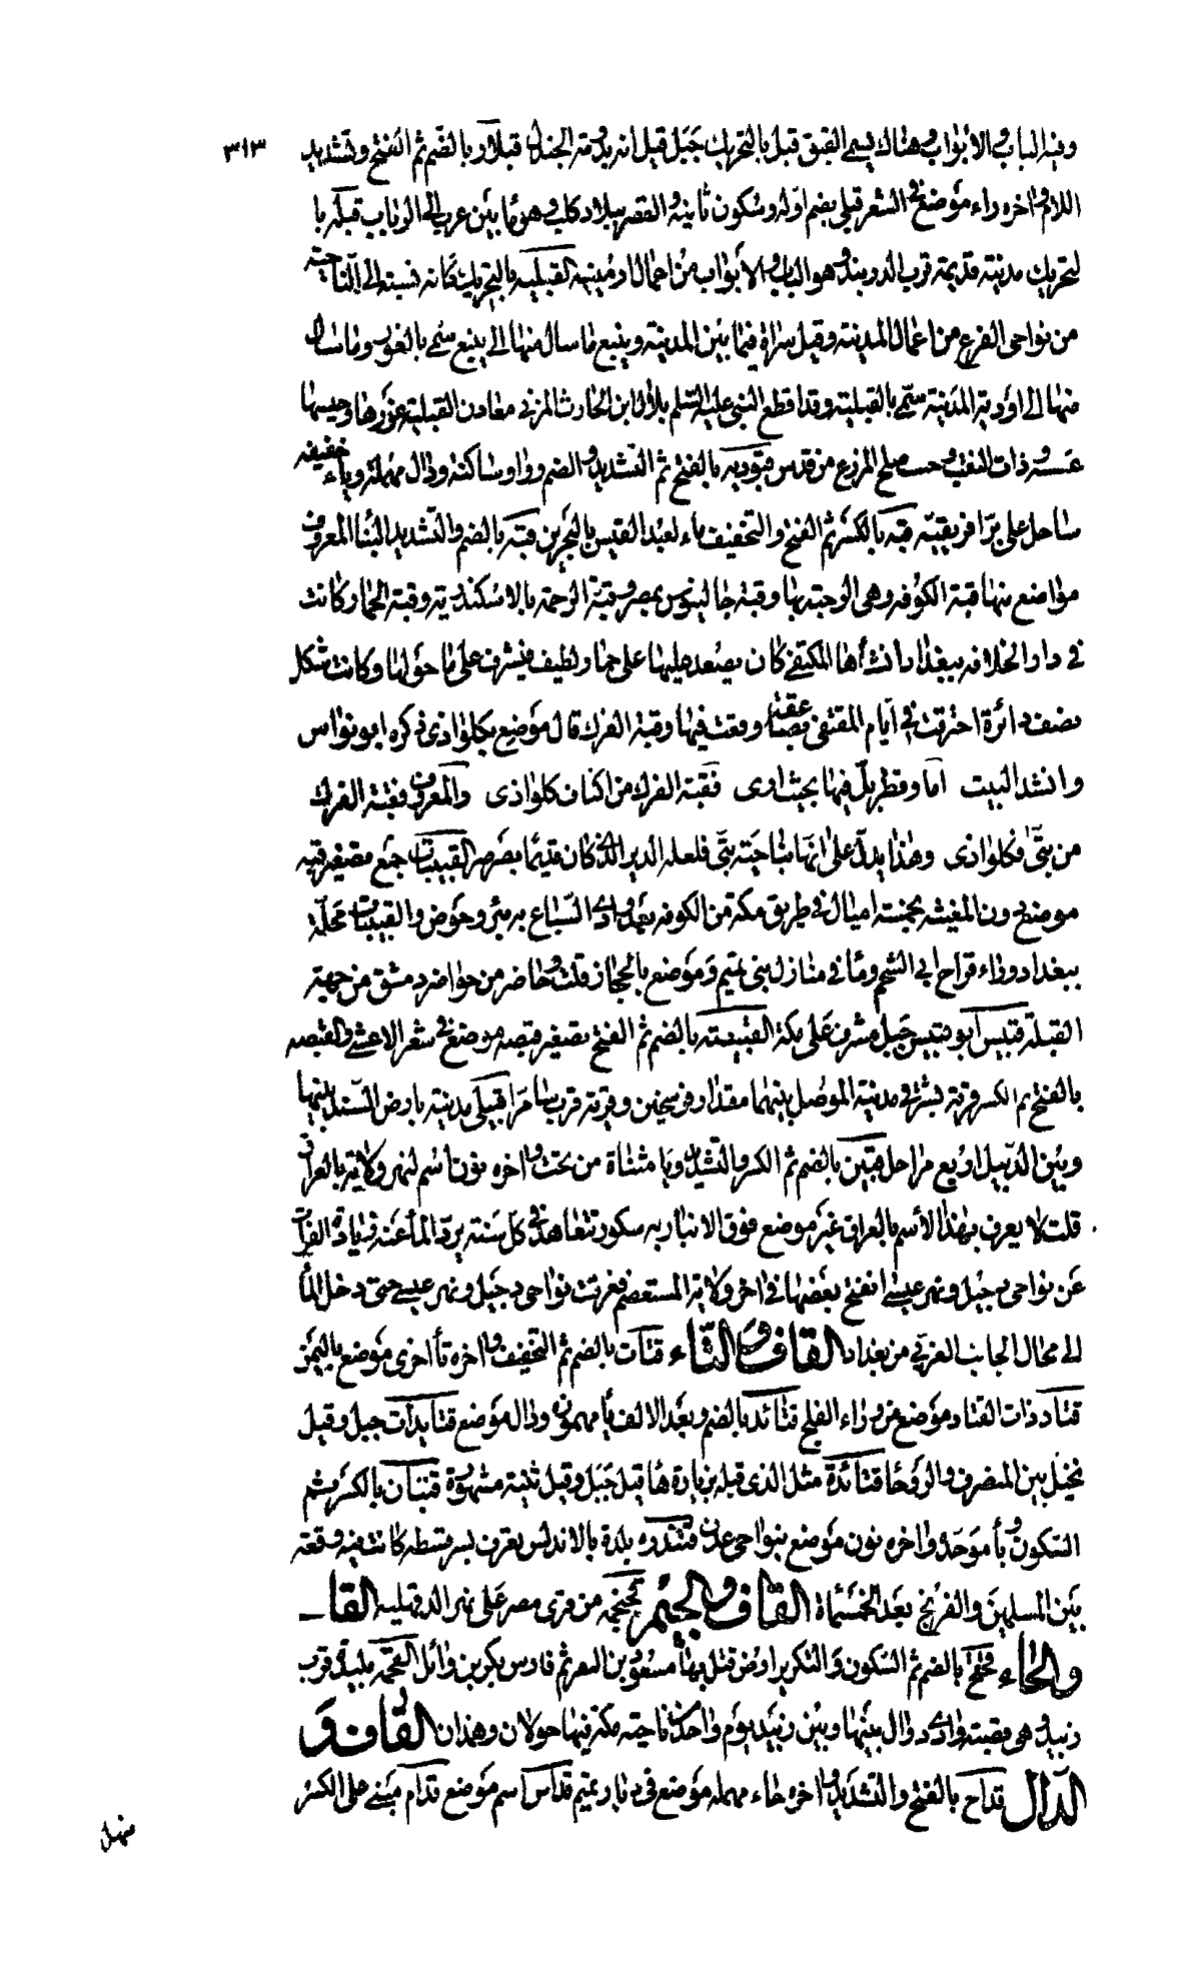 ٣١٣
وفيه الباب والأبواب وهناك يسمى القبق قبل بالتحريك جبل قيل انه بدومة الجندل قبلار بالضم ثم الفتح وتشديد
اللام واخره راء موضع في الشعر قبلى بضم اوله وسكون ثانيه والقصر ببلاد كلب وهو ما بين عرب الى الرباب قبله با
لتحريك مدينة قديمة قرب الدربند وهو الباب والأبواب من اعمال ارمينية القبلية بالتحريك كانه نسبة الى الناحية
من نواحى الفرع من اعمال المدينة وقيل سراة فيما بين المدينة وينبع ما سال منها الى ينبع سمى بالغور وما سال
منها الى اودية المدينة سمى بالقبلية وقد اقطع النبى عليه السلم بلال ابن الحارث المزنى معادن القبلية غورها وجلسها
وذات النقب وحيث صلح الزرع من قدس قبودية بالفتح ثم التشديد والضم وواو ساكنة ودال مهملة وياء خفيفة
ساحل على بر افريقيه قبه بالكسر ثم الفتح والتخفيف ماء لعبد القيس بالبحرين قبة بالضم والتشديد البنا المعروف
مواضع منها قبة الكوفه وهى الرحبة بها وقبة جالينوس بمصر وقبة الرحمة بالاسكندرية وقبة الحمار كانت
فى دار الخلافه ببغداد انشأها المكتفى كان يصعد اليها على حمار لطيف فيشرف على ما حولها وكانت شكل
نصف دائرة احترقت فى ايام المقتفى بصاعقة وقعت فيها وقبة الفرك قال موضع بكلواذى ذكره ابو نواس
وانشد البيت اما وقطربل فيها بحيث ارى فقبة الفرك من اكناف كلواذى والمعروف وقبة الفرك
من بنى فكلواذى وهذا يدل على انها بناحية بنى فلعله الدير الذى كان قديما بصرصر القبيبات جمع تصغير قبه
موضع دون المغيثه بخمسة اميال فى طريق مكة من الكوفه بعد وادى السباع به بئر وحوض والقبيبات محلة
ببغداد وراء قراح ابى الشحم وما فى منازل بنى تميم وموضع بالحجاز قلت وحاضر من حواضر دمشق من جهة
القبلة قبيس ابو قبيس جبل مشرف على مكة القبيصة بالضم ثم الفتح تصغير قبصه موضع فى شعر الاعشى والقبيصه
بالفتح ثم الكسر قرية بشرقى مدينة الموصل بينهما مقدار فرسخين وقرية قرب سامرا قبيلى مدينة بارض السند بينها
وبين الديبل اربع مراحل قبين بالضم ثم الكسر والتشديد ويا مثناة من تحت واخره نون اسم لنهر وكالية بالعراق
قلت لا يعرف بهذا الأسم بالعراق غير موضع فوق الانبار به سكور تتعاهد فى كل سنة يرد الماء عند زيادة الفرات
عن نواحى دجيل ونهر عيسى انفتح بعضها فى اخر وكالة المستعصم فغرقت نواحى دجيل ونهر عيسى حتى دخل الماء
الى محال الجانب الغربى من بغداد القاف والتاء قتات بالضم ثم التخفيف واخره تأ اخرى موضع باليمن
قتاد ذات القتاد موضع من وراء الفلج قتائد بالضم وبعد الالف يأ مهموزه ودال موضع قتايدات جبل وقيل
نخيل بين المنصرف والروحا قتائدة مثل الذى قبله بزيادة ها قيل جبل وقيل ثنية مشهورة قتبان بالكسر ثم
السكون وبأ موحدة واخره نون موضع بنواحى عدن قتندة بلدة بالاندلس بقرب سرقسطه كانت فيه وقعة
بين المسلمين والفرنج بعد الخمسمائة القاف والجيم من قرى مصر على نهر الدقهلية القا
والحاء قحقح بالضم ثم السكون والتكرير ارض قتل بها مسعود بن ثم فارس بكر بن وائل القحمه بليدة قرب
زبيد وهى قصبة وادى ذوال بينها وبين زبيد يوم واحد من ناحية مكة فيها خولان وهمدان القاف و
الدال قداح بالفتح والتشديد واخره حاء مهمله موضع فى ديار تميم قداس اسم موضع قدام مبنى على الكسر
منهل